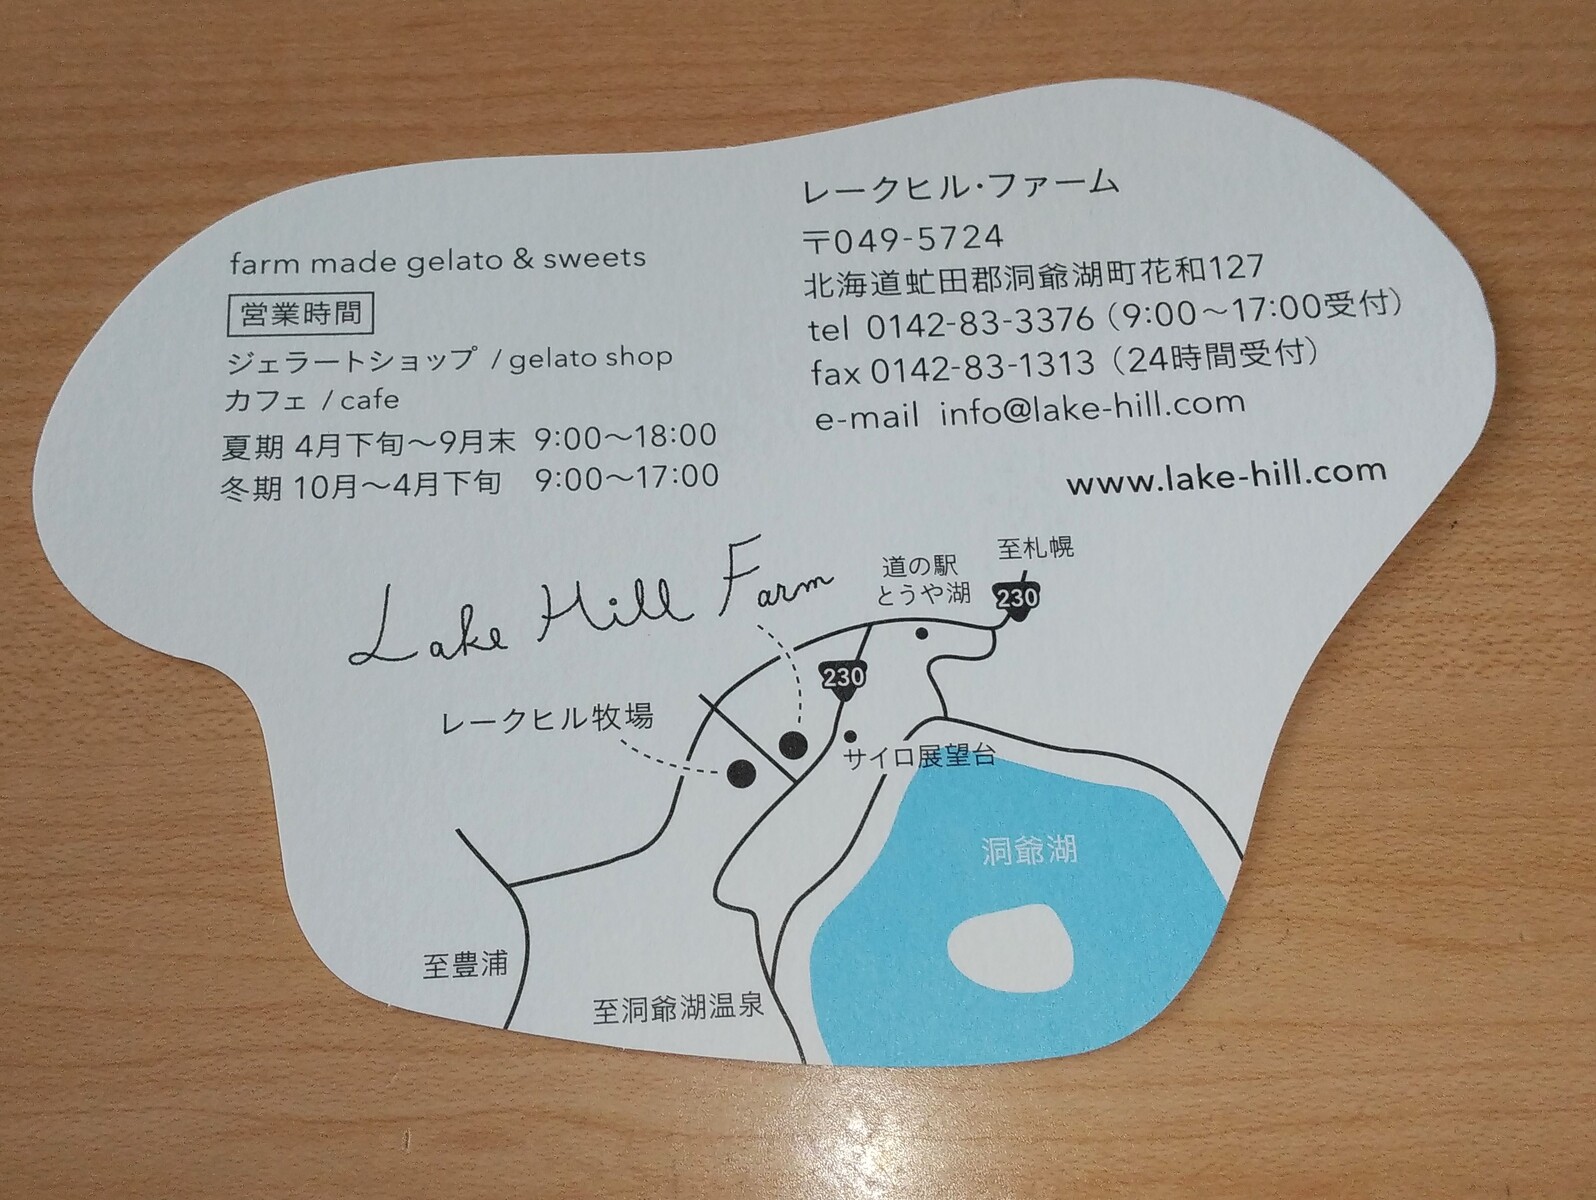 farm made gelato & sweets
営業時間
ジェラートショップ / gelato shop
カフェ / cafe
夏期 4月下旬〜9月末 9:00〜18:00
冬期 10月〜4月下旬 9:00〜17:00
レークヒル・ファーム
〒049-5724
北海道虻田郡洞爺湖町花和127
tel 0142-83-3376（9:00〜17:00受付）
fax 0142-83-1313（24時間受付）
e-mail info@lake-hill.com
www.lake-hill.com
Lake Hill Farm
道の駅
とうや湖
至札幌
230
230
レークヒル牧場
サイロ展望台
洞爺湖
至豊浦
至洞爺湖温泉